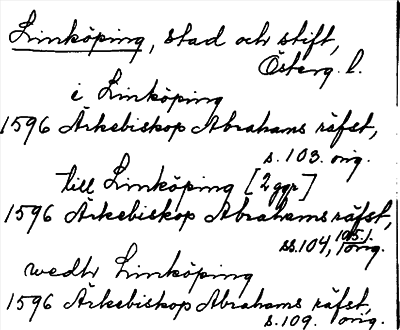 Linköping, stad och stift,
Österg. l.
i Linköping
1596 Ärkebiskop Abrahams räfst,
s. 103. orig.
till Linköping [2 ggr]
1596 Ärkebiskop Abrahams räfst,
ss. 104, 105. 1. orig.
wedh Linköping
1596 Ärkebiskop Abrahams räfst,
s. 109. orig.